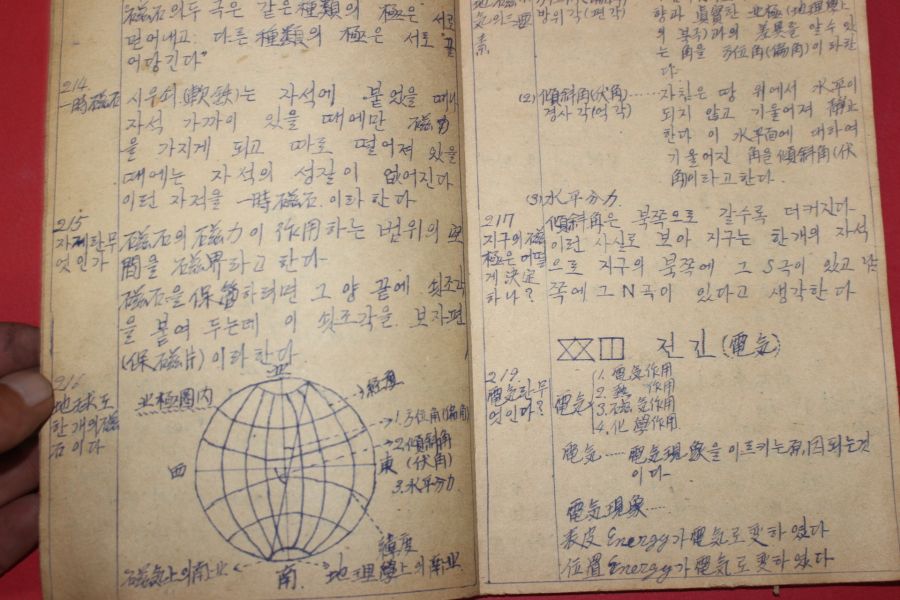 磁石의 두 극은 같은 種類의 極은 서로
밀어내고 다른 種類의 極은 서로 "끌
어당긴다"
214
一時磁石
시우쇠(軟鉄)는 자석에 붙었을 때나
자석 가까이 있을 때에만 磁力
을 가지게 되고 따로 떨어져 있을
때에는 자석의 성질이 없어진다
이런 자적을 一時磁石이라 한다
215
자계란 무
엇인가
磁石의 磁力이 作用하는 범위의 空
間을 磁界라고 한다
磁石을 保管하려면 그 양 끝에 쇳조각
을 붙여 두는데 이 쇳조각을 보자편
(保磁片)이라 한다
216
地球도
한 개의 磁
石이다
北極圏內
北
經度
1. 방位角(偏角)
2. 傾斜角
(伏角)
3. 水平分力
西
東
緯度
磁気上의 南北
南
地理學上의 南北
방위각(편각)
향과 眞實한 北極(地理學上
의 북주)과의 差異를 알수 있
는 角을 方位角(偏角)이라 한
다
(2) 傾斜角(伏角)
경사각(역각)
자침은 땅 위에서 水平이
되지 않고 기울어져 靜止
한다 이 水平面에 대하여
기울어진 角을 傾斜角(伏
角)이라고 한다.
(3) 水平分力
217
지구의 磁
極은 어떻
게 決定
하나?
傾斜角은 북쪽으로 갈수록 더 커진다
이런 사실로 보아 지구는 한개의 자석
으로 지구의 북쪽에 그 S극이 있고 남
쪽에 그 N극이 있다고 생각한다
전긔(電気)
219
電気란 무
엇인가?
電気
1. 電気作用
2. 熱 作用
3. 磁気作用
4. 化學作用
電気 ‥‥ 電気現象을 이르키는 原因되는것
이다.
電気現象 ‥‥
Energy가 電気로 変하였다
位置 Energy가 電気로 変하였다